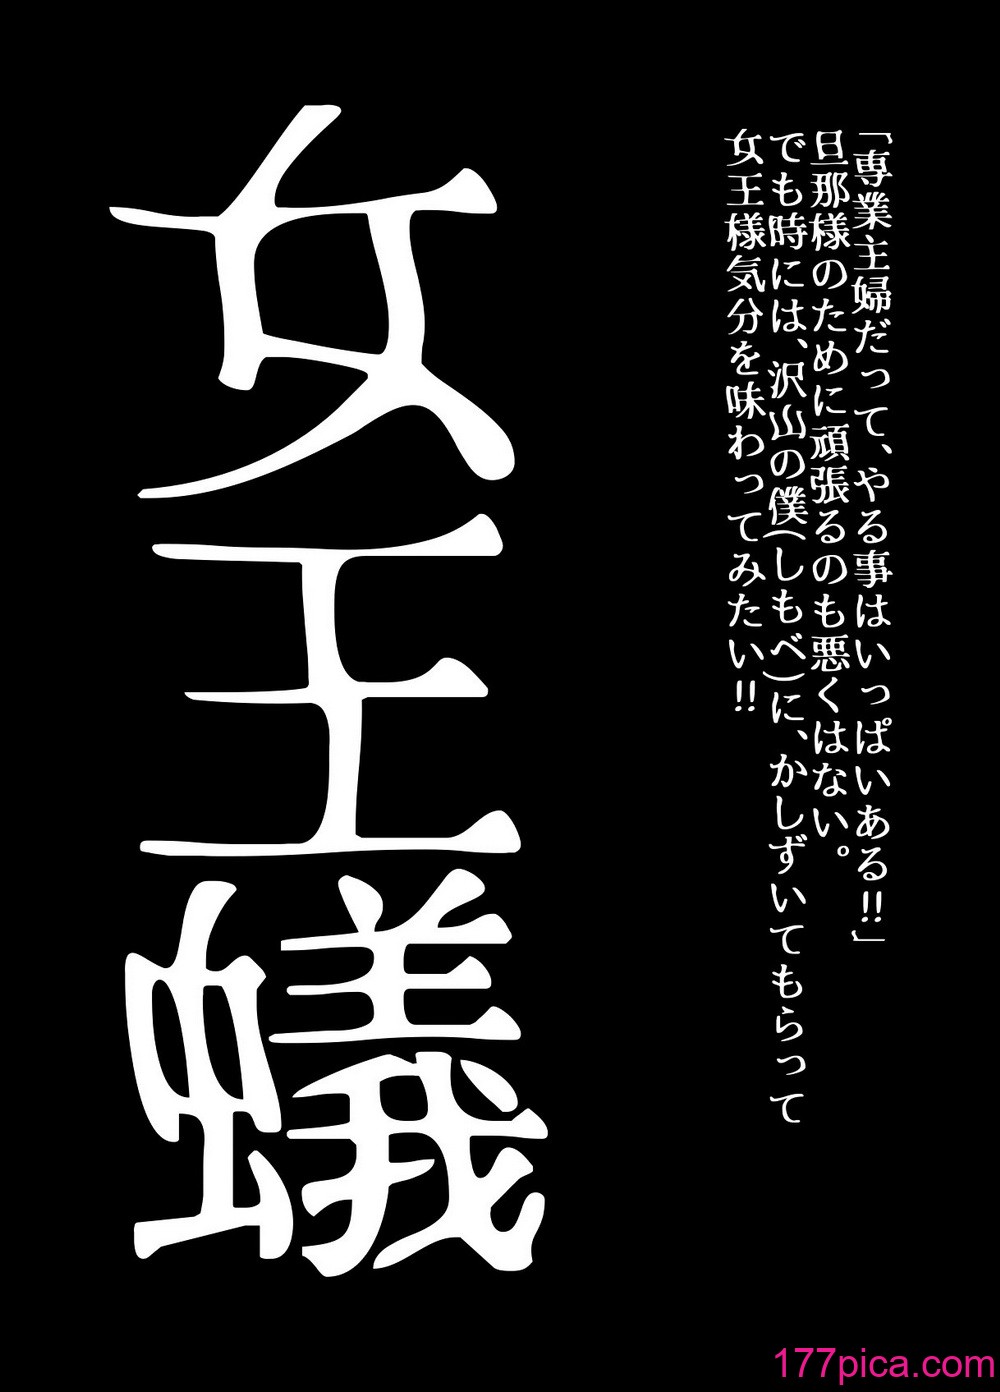 「専業主婦だって、やる事はいっぱいある!!」
旦那様のために頑張るのも悪くはない。
でも時には、沢山の僕(しもべ)に、かしずいてもらって
女王様気分を味わってみたい!!
女王蟻
177pica.com